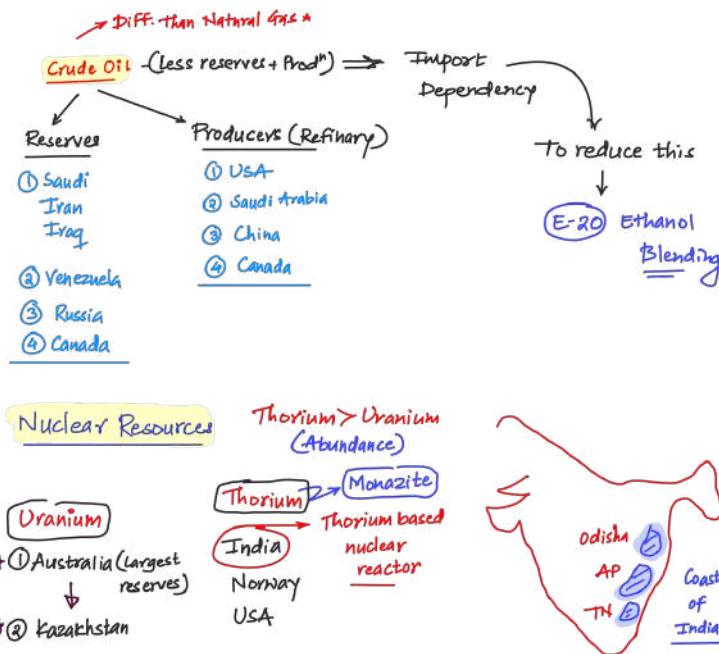 Diff. than Natural Gas *
Crude Oil - (Less reserves + Prodⁿ) ⇒ Import
Dependency
To reduce this
E-20 Ethanol
Blending
Reserves
① Saudi
Iran
Iraq
② Venezuela
③ Russia
④ Canada
Producers (Refinary)
① USA
② Saudi Arabia
③ China
④ Canada
Nuclear Resources
Thorium > Uranium
(Abundance)
Uranium
① Australia (largest
reserves)
② Kazakhstan
Thorium → Monazite
India → Thorium based
nuclear
reactor
Norway
USA
Odisha
AP
TN
Coast
of
India